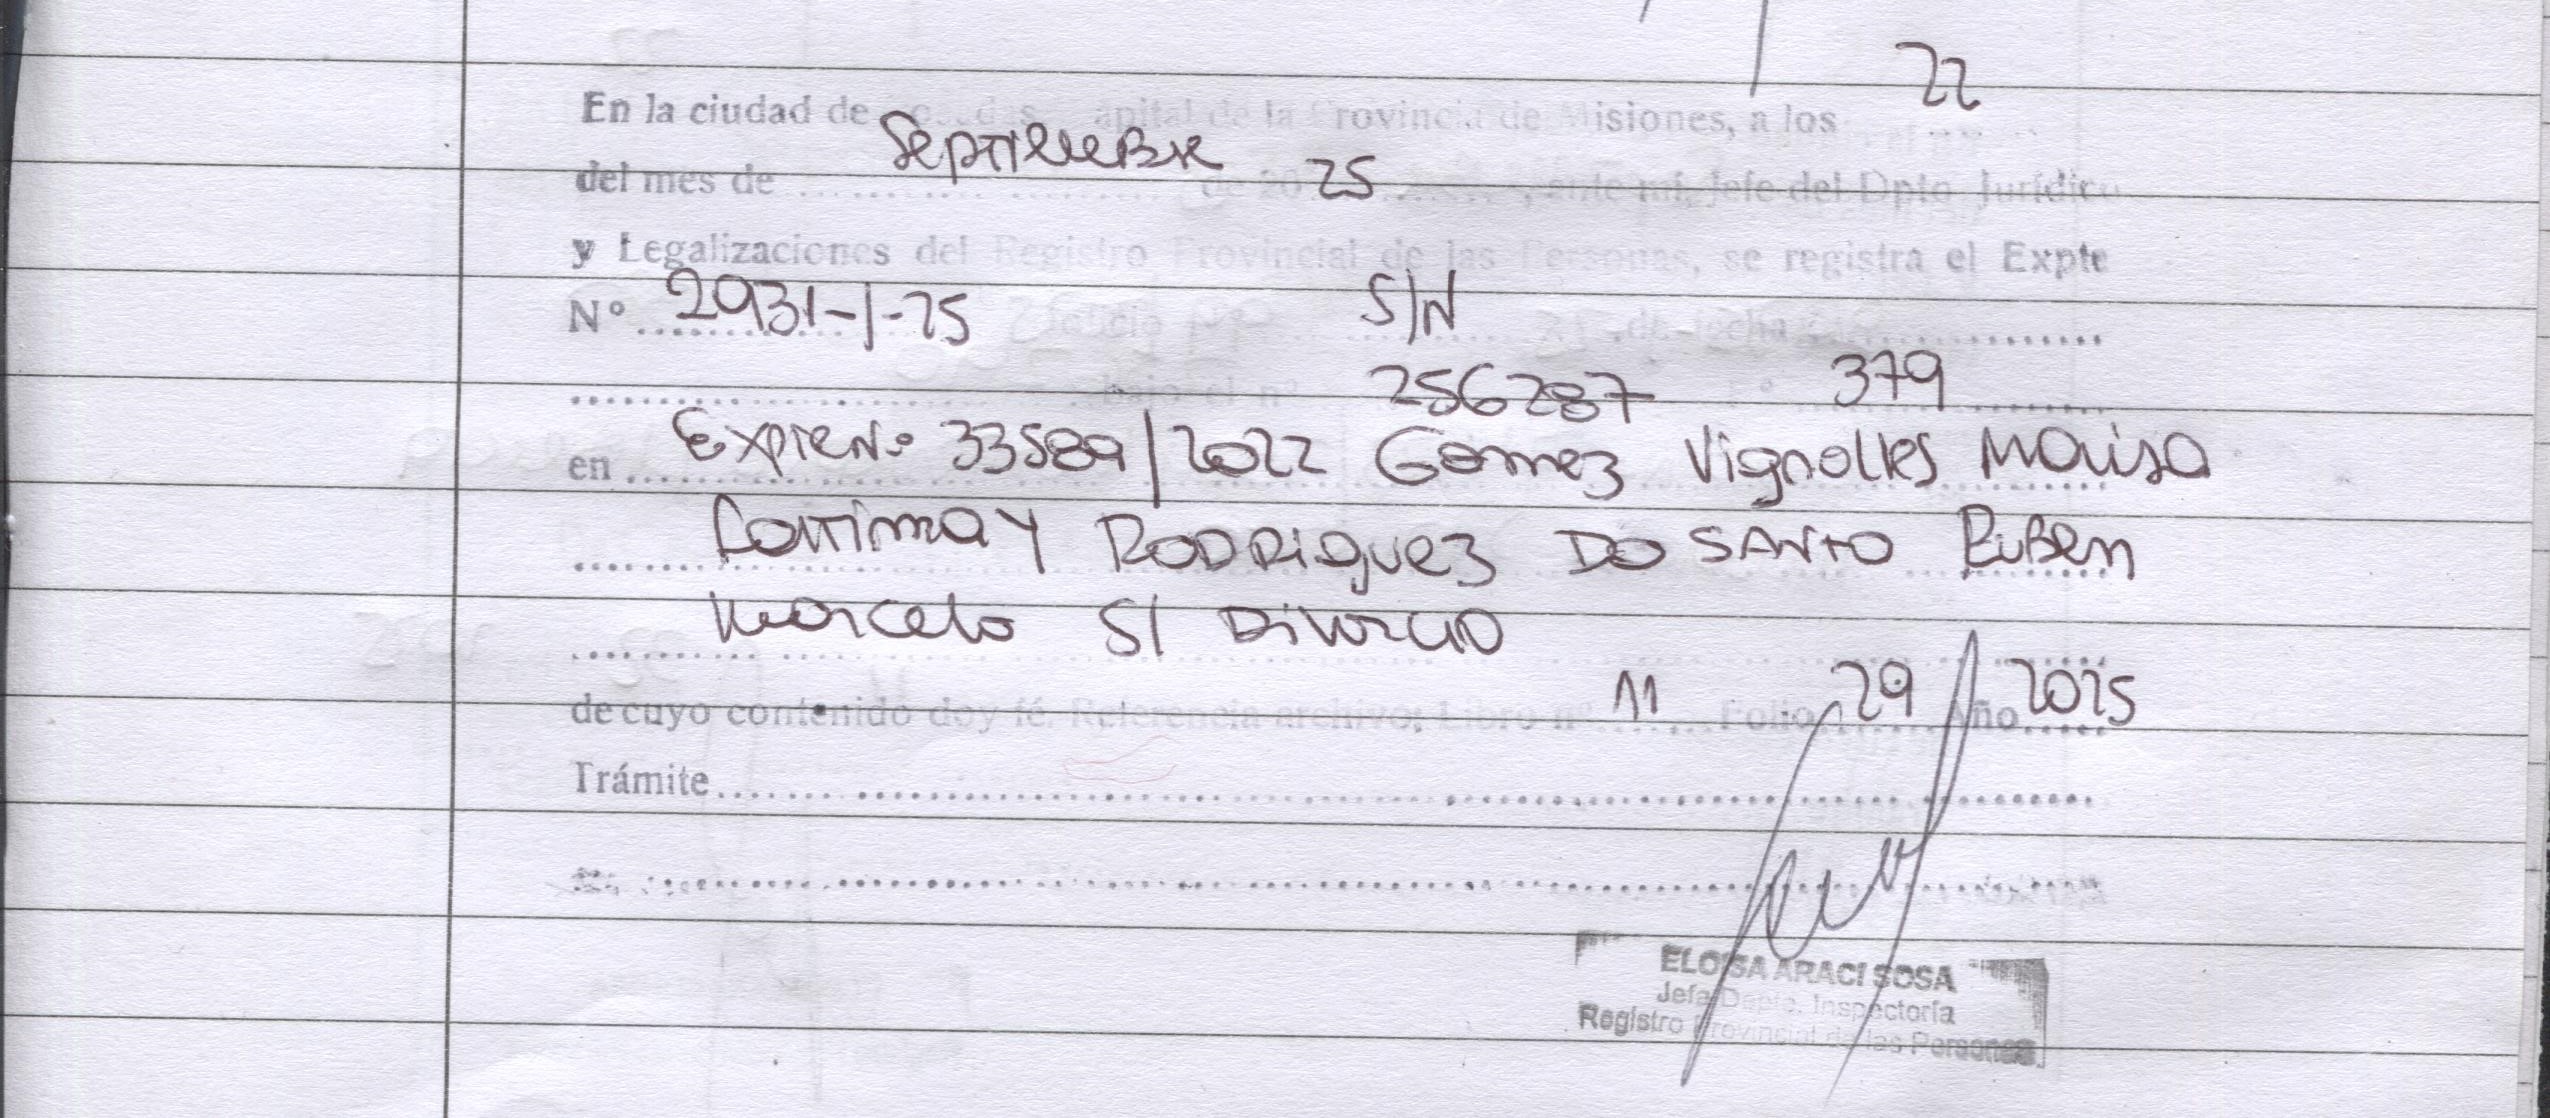 22
En la ciudad de Posadas, Capital de la Provincia de Misiones, a los
Septiembre 25
del mes de ............ de 20 ........, ante mí, Jefe del Dpto Jurídico
y Legalizaciones del Registro Provincial de las Personas, se registra el Expte
Nº 2931-1-25 Oficio Nº S/N de fecha
bajo el nº 256287 Fº 379
en Expte Nº 33589/2022 Gomez Vignolles
y RODRIGUEZ DO SANTO RUBEN
Marcelo S/ Divorcio
de cuyo contenido doy fé. Referencia archivo; Libro nº 11 Folio 29 Año 2025
Trámite
ELOISA ARACI SOSA
Jefa Dpto. Inspectoría
Registro Provincial de las Personas